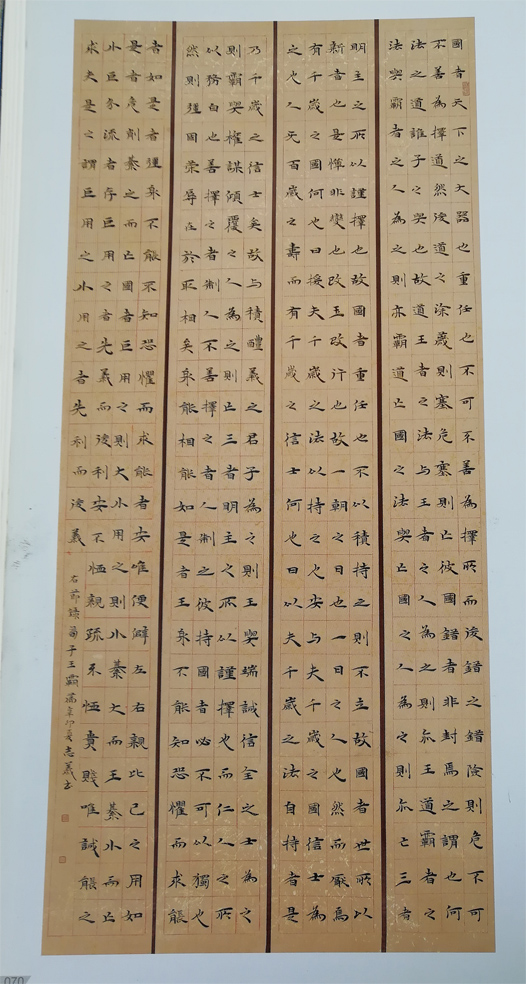 國者天下之大器也重任也不可不善為擇所而後錯之錯險則危不可
不善為擇道然後道之涂薉則塞危塞則亡彼國錯者非封焉之謂也何
法之道誰子之與也故道王者之法与王者之人為之則亦王道霸者之
法與霸者之人為之則亦霸道亡國之法與亡國之人為之則亦亡三者
明主之所以謹擇也故國者重任也不以積持之則不立故國者世所以
新者也是憚非變也改玉改行也故一朝之日也一日之人也然而厭焉
有千歲之國何也曰援夫千歲之法以持之也安与夫千歲之國信士為
之也人无百歲之壽而有千歲之信士何也曰以夫千歲之法自持者是
乃千歲之信士矣故与積禮義之君子為之則王與端誠信全之士為之
則霸與權謀傾覆之人為之則亡三者明主之所以謹擇也而仁人之所
以務白也善擇之者制人不善擇之者人制之彼持國者必不可以獨也
然則彊固榮辱在於取相矣身能相能如是者王身不能知恐懼而求能
者如是者彊身不能不知恐懼而求能者安唯便僻左右親比己之用如
是者危削綦之而亡國者巨用之則大小用之則小綦大而王綦小而亡
小巨分流者存巨用之者先義而後利安不恤親疏不恤貴賤唯誠能之
求夫是之謂巨用之小用之者先利而後義
右節錄荀子王霸篇辛卯夏志義書
070